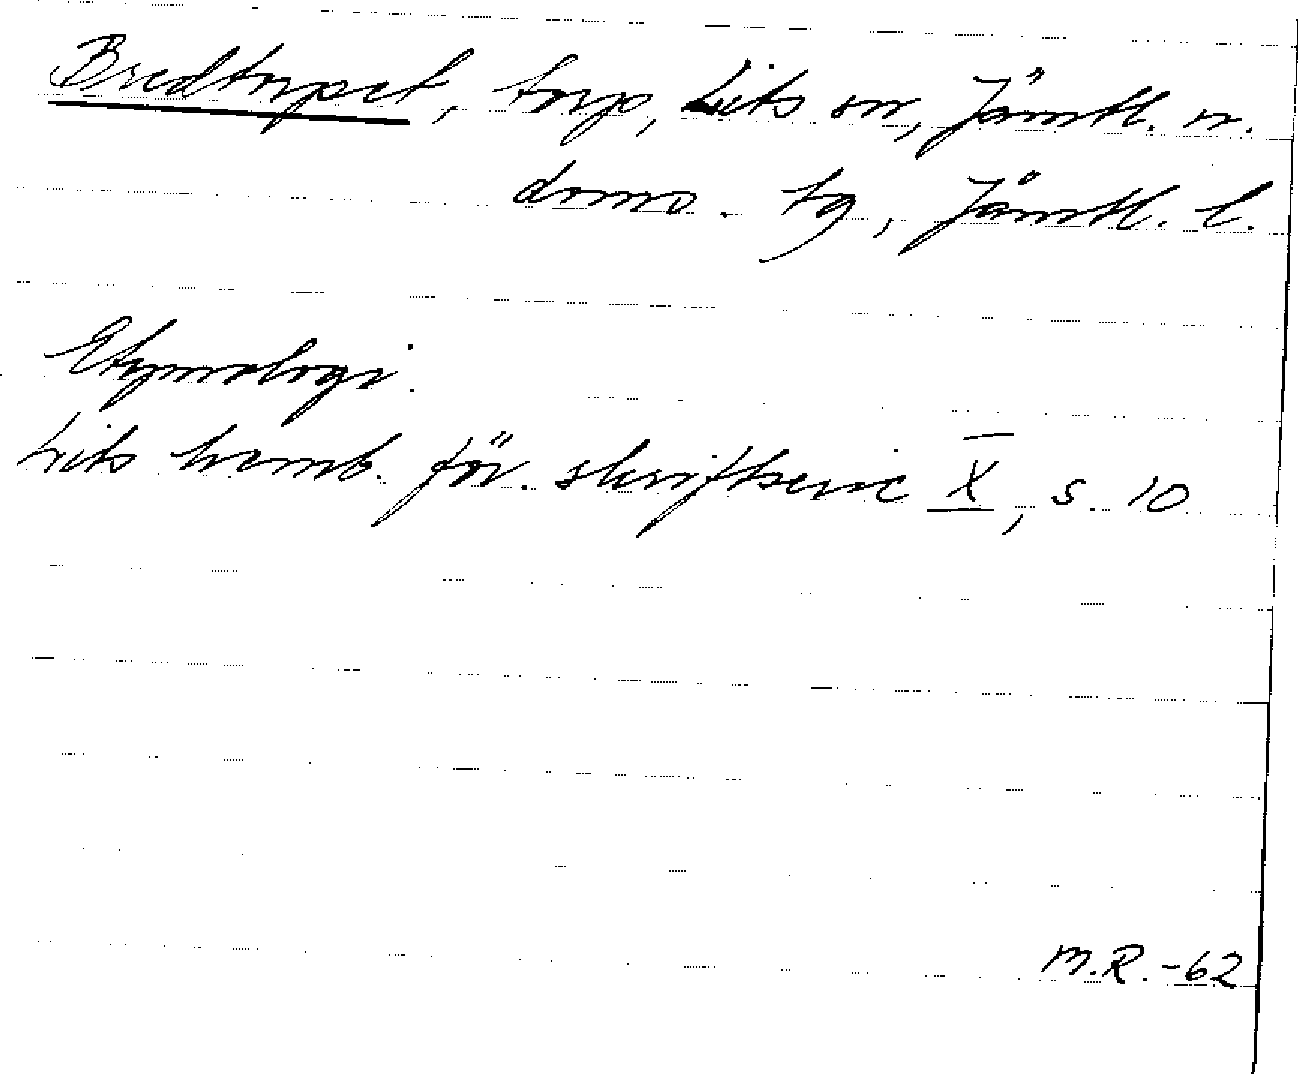 Bredtorpet, torp, Lits sn, Jämtl. n.
doms. tg, Jämtl. l.
Etymologi:
Lits hemb. för. skriftserie X, s. 10
M.R.-62